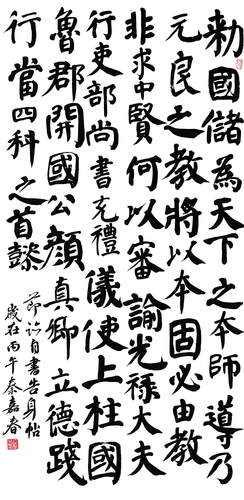 勑國儲為天下之本師導乃
元良之教將以本固必由教
非求中賢何以審諭光祿大夫
行吏部尚書充禮儀使上柱國
魯郡開國公顏真卿立德踐
行當四科之首懿
節自書告身帖
歲在丙午嘉春